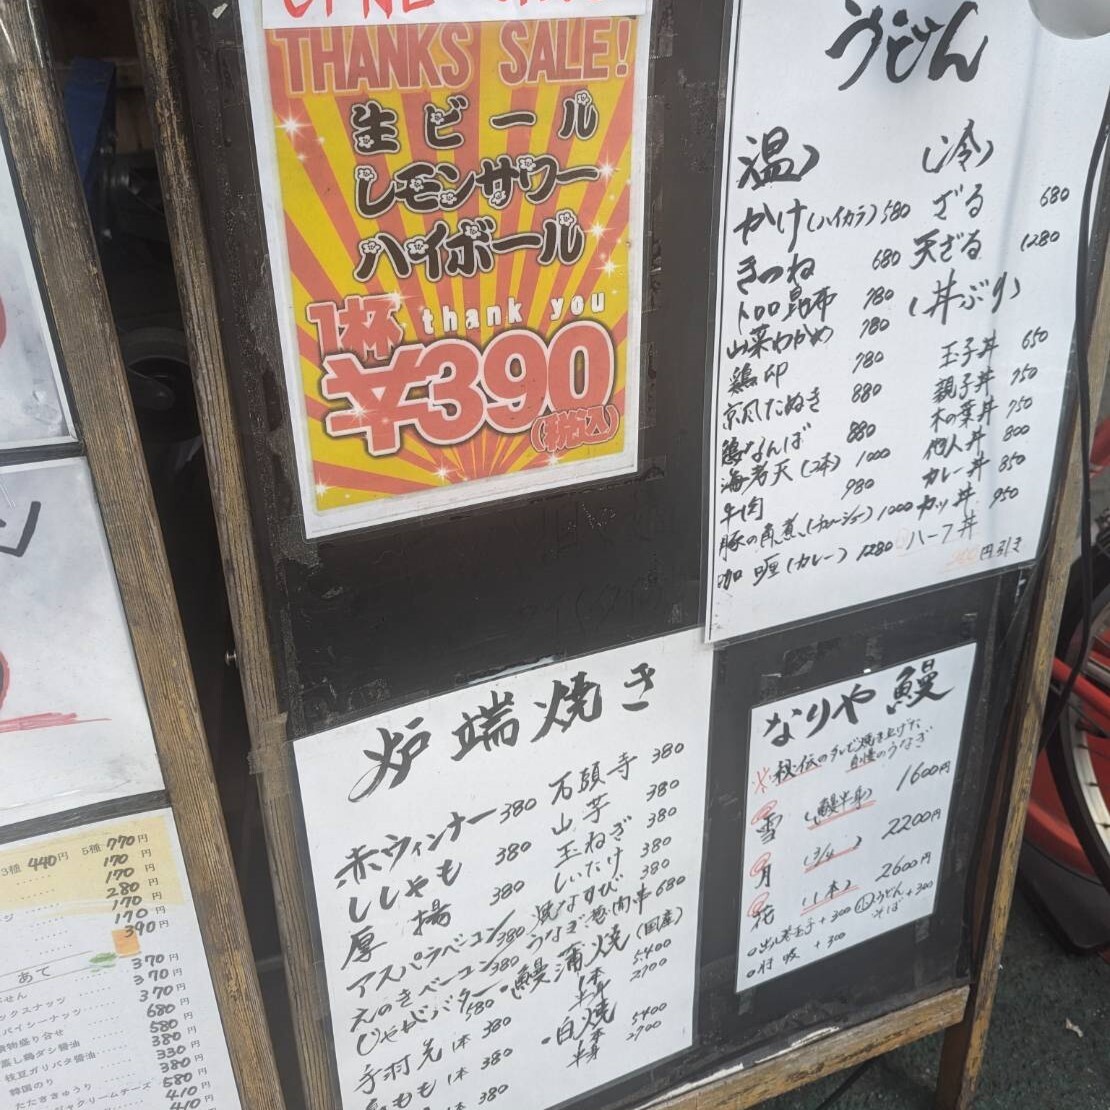 THANKS SALE!
生ビール
レモンサワー
ハイボール
1杯 thank you
¥390
(税込)
うどん
温)
かけ(ハイカラ) 580
きつね 680
トロロ昆布 780
山菜わかめ 780
鶏卵 780
京風たぬき 880
鶏なんば 880
海老天(2本) 1000
牛肉 980
豚の角煮 1000
咖喱(カレー) 1280
(冷)
ざる 680
天ざる 1280
(丼ぶり)
玉子丼 650
親子丼 750
木の葉丼 750
他人丼 800
カレー丼 850
カツ丼 950
ハーフ丼
円引き
炉端焼き
赤ウィンナー 380
ししゃも 380
厚揚 380
アスパラベーコン 380
えのきベーコン 380
じゃがバター 580
手羽先 1本 380
もも 1本 380
石頭寺 380
山芋 380
玉ねぎ 380
しいたけ 380
焼なすび 380
うなぎ 肉串 680
・鰻蒲焼(国産)
1本 5400
半身 2700
・白焼
1本 5400
半身 2700
なりや鰻
※秘伝のタレで焼き上げた
自慢のうなぎ
雪 (鰻半身) 1600円
月 (3/4) 2200円
花 (1本) 2600円
○出し巻玉子+300
うどん
そば +300
○肝吸 +300
3種 440円 5種 770円
170円
170円
280円
170円
170円
390円
あて
370円
370円
ックスナッツ 370円
パイシーナッツ 680円
漬物盛り合せ 580円
蒸し鶏ダシ醤油 380円
枝豆ガリバタ醤油 330円
韓国のり 380円
たたききゅうり 580円
ジャクリームチーズ 410円
410円